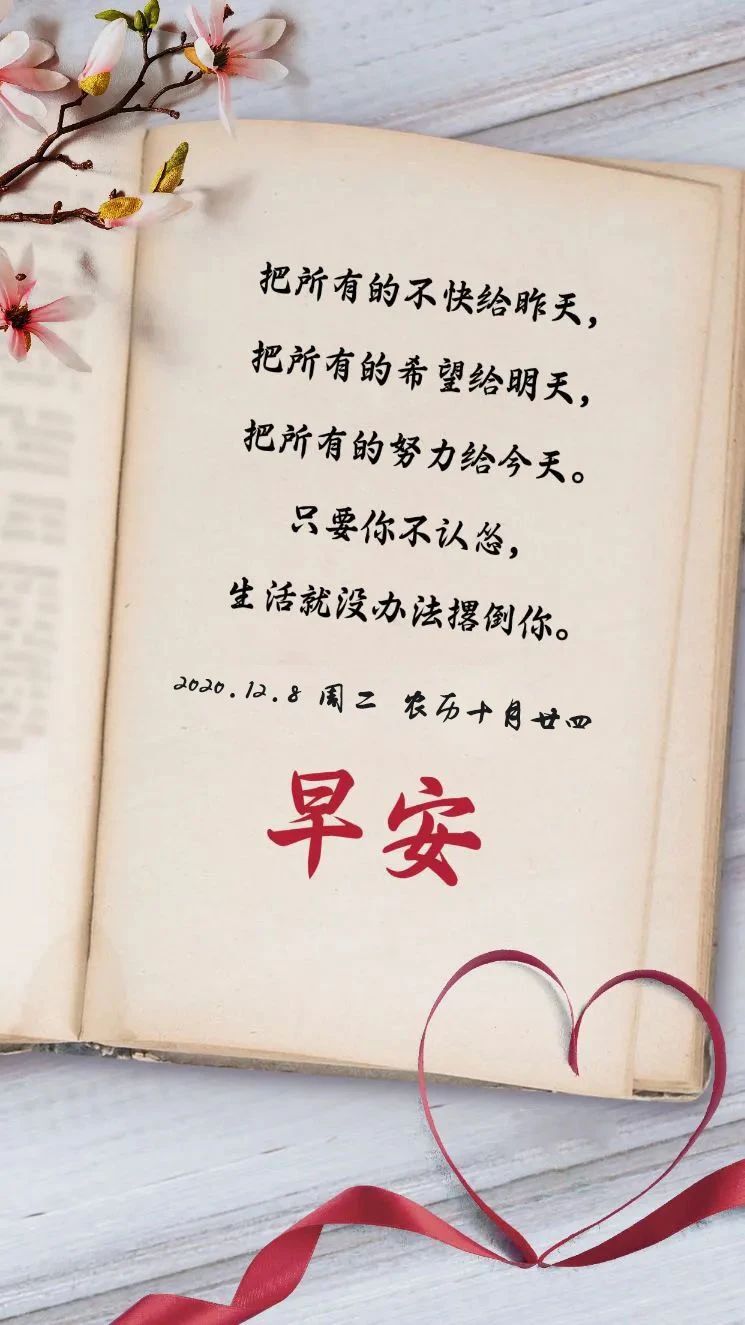 把所有的不快给昨天，
把所有的希望给明天，
把所有的努力给今天。
只要你不认怂，
生活就没办法撂倒你。
2020.12.8 周二 农历十月廿四
早安